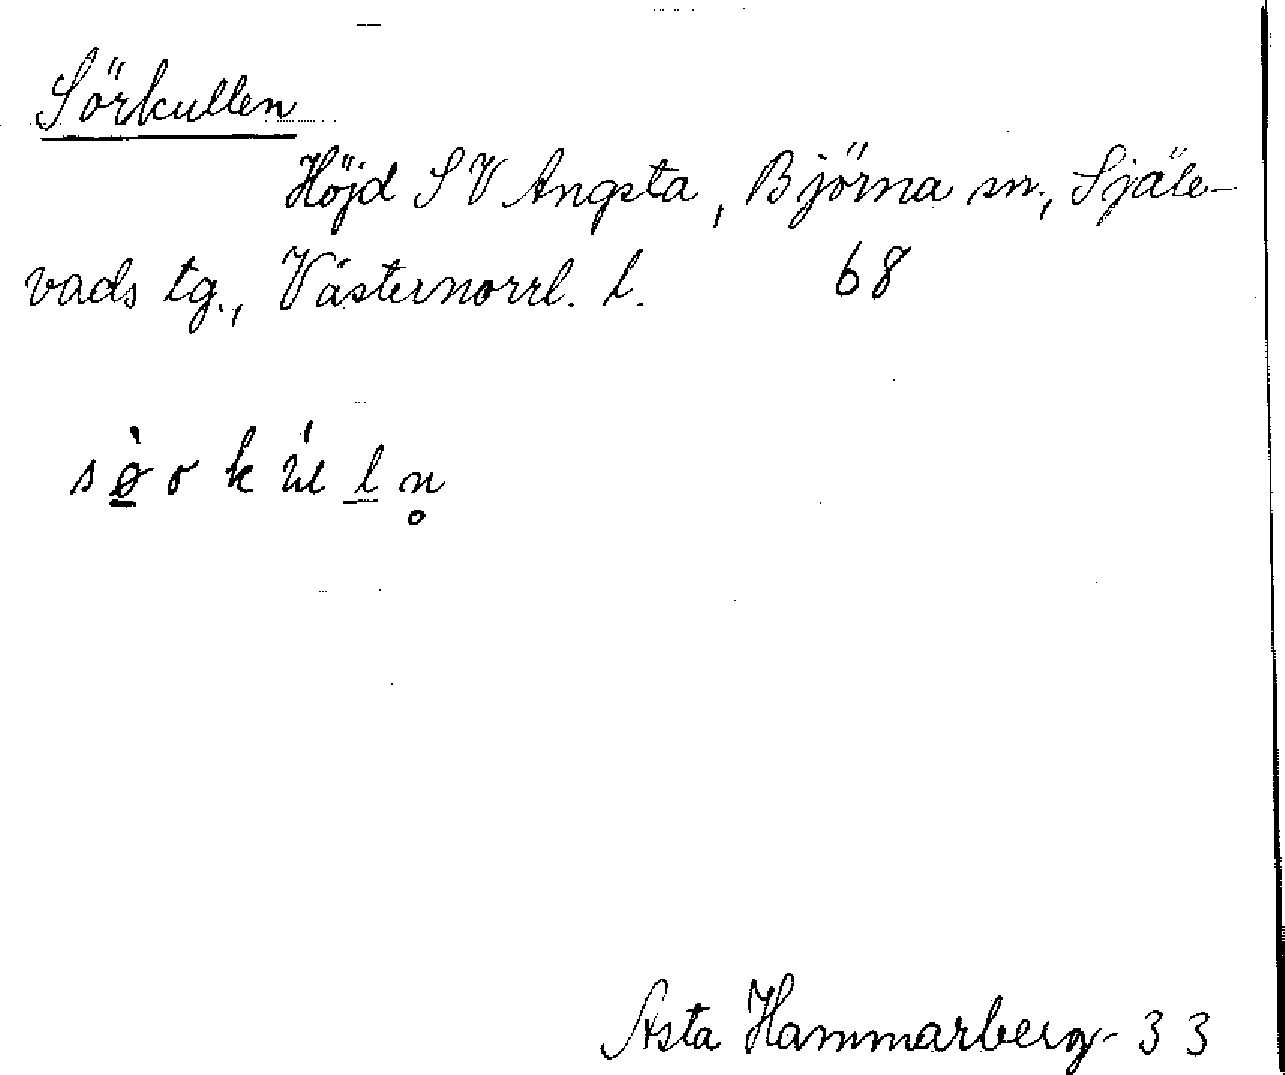 Sörkullen
Höjd SV Angsta, Björna sn., Själe-
vads tg., Västernorrl. l. 68
sø̠̀r kúl̠n̥
Asta Hammarberg - 33